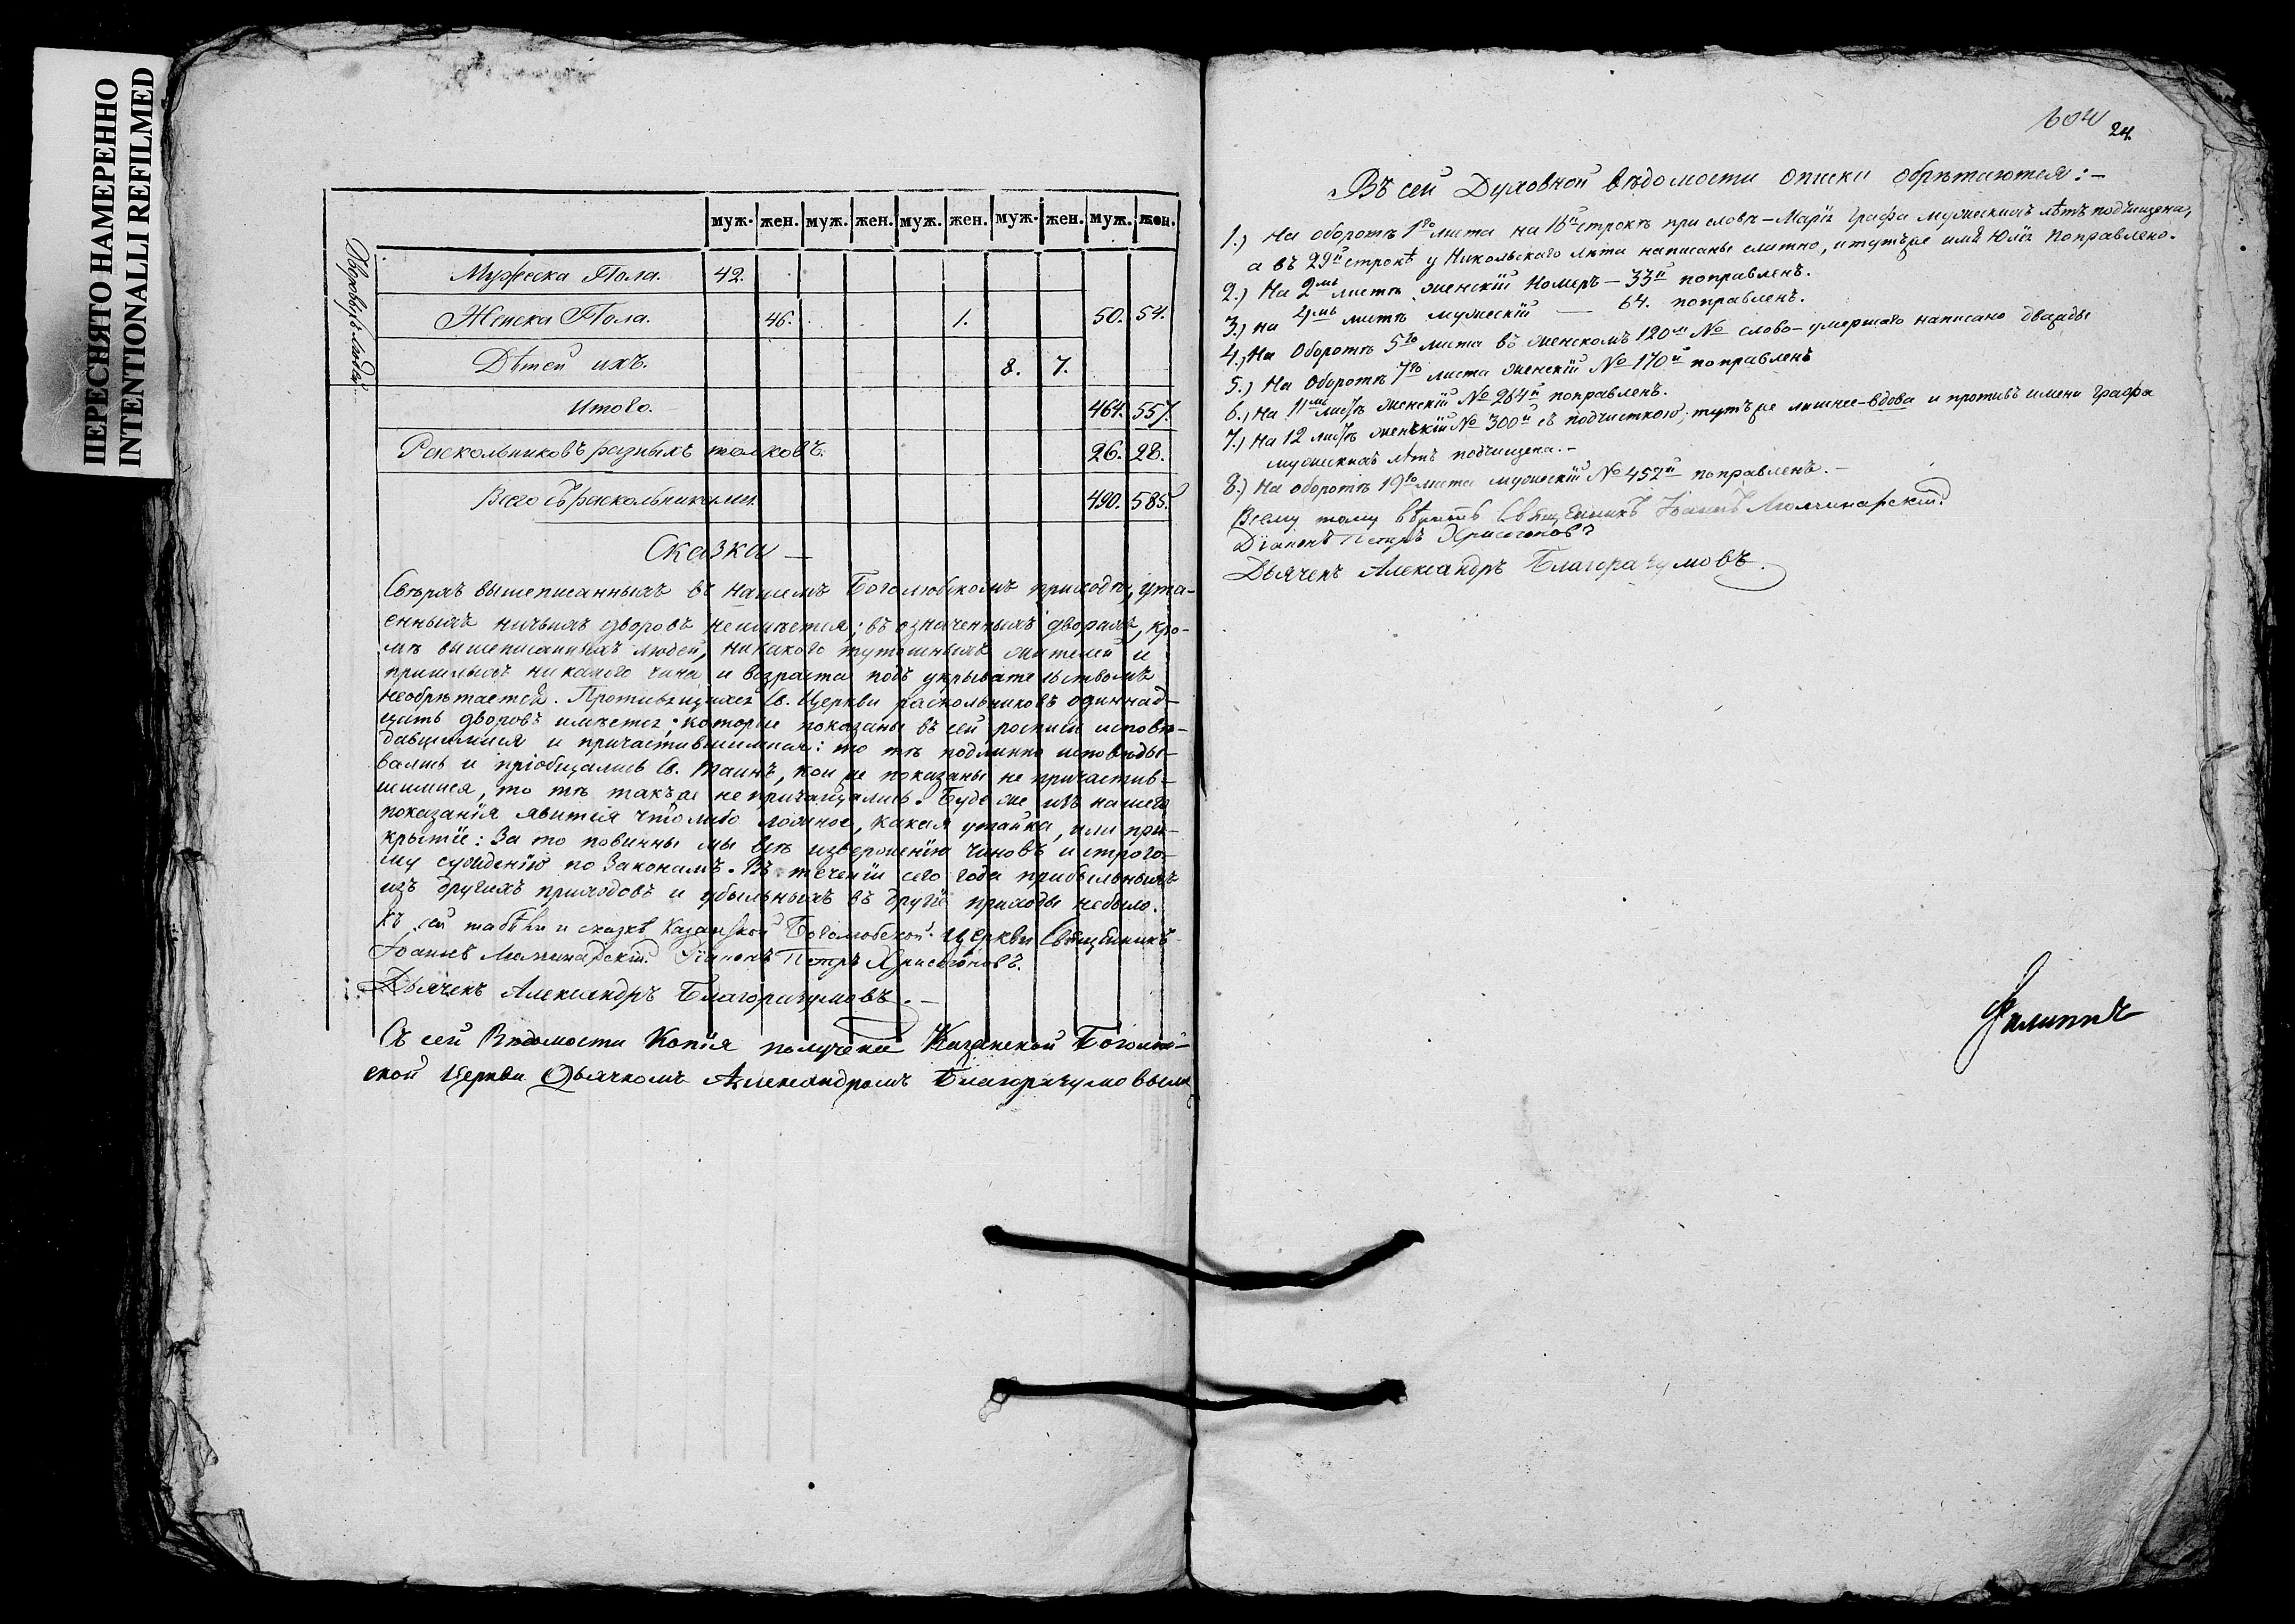 ПЕРЕСНЯТО НАМЕРЕННО
INTENTIONALLI REFILMED
муж. жен. муж. жен. муж. жен. муж. жен. муж. жен.
Дворовыхъ людей
Мужеска Пола. 42.
Женска Пола. 46. 1. 50. 54.
Дѣтей ихъ. 8. 7.
Итого. 464. 557.
Раскольниковъ разныхъ толковъ. 26. 28.
Всего съ раскольниками. 490. 585.
Сказка —
Сверхъ вышеписанныхъ въ нашемъ Боголюбскомъ приходѣ, ута-
енныхъ ничьихъ дворовъ неимѣется; въ означенныхъ дворахъ, кро-
мѣ вышеписанныхъ людей, никакого тутошныхъ жителей и
пришлыхъ никакого чина и возраста подъ укрывательствомъ
необрѣтается. Противящихся Св. Церкви раскольниковъ одиннад-
цать дворовъ имѣется; которые показаны въ сей росписи исповѣ-
давшимися и причастившимися: то тѣ подлинно исповѣды-
вались и пріобщались Св. Таинъ, кои же показаны не причастив-
шимися, то тѣ такъже не причащались. Буде же изъ нашего
показанія явится что либо ложное, какая утайка, или при-
крытіе: За то повинны мы всѣ изверженію чиновъ и строго-
му сужденію по Законамъ. Въ теченіи сего года прибыльныхъ
изъ другихъ приходовъ и убыльныхъ въ другіе приходы небыло.
Къ сей табели и сказкѣ Казанской Боголюбской Церкви Священникъ
Іоаннъ Діаконъ Петръ Хрисогоновъ.
Дьячекъ Александръ Благоразумовъ. —
Съ сей Вѣдомости Копія получена Казанской Боголюб-
ской Церкви Дьячкомъ Александромъ Благоразумовымъ
604 24.
Въ сей Духовной вѣдомости описки обрѣтаются: —
1.) На оборотѣ 1го листа на 16й строкѣ при словѣ — Марія графа мужескихъ лѣтъ подчищена,
а въ 29й строкѣ у Никольскаго лѣта написаны слитно, и тутъже имя Юлія поправлено.
2.) На 2мъ листѣ женскій Номеръ — 33й поправленъ.
3.) на 4мъ листѣ мужескій — 64. поправленъ.
4.) На Оборотѣ 5го листа въ женскомъ 120мъ № слово — умершаго написано дважды
5.) На Оборотѣ 7го листа женскій № 170й поправленъ
6.) На 11мъ листѣ женскій № 264й поправленъ.
7.) На 12 листѣ женскій № 300й съ подчисткою; тутъже лишнее — вдова и противъ имени графа
мужескихъ лѣтъ подчищена. —
8.) На оборотѣ 19го листа мужескій № 452й поправленъ. —
Всему тому вѣрить Священникъ Іоаннъ
Діаконъ Петръ Хрисогоновъ
Дьячекъ Александръ Благоразумовъ.